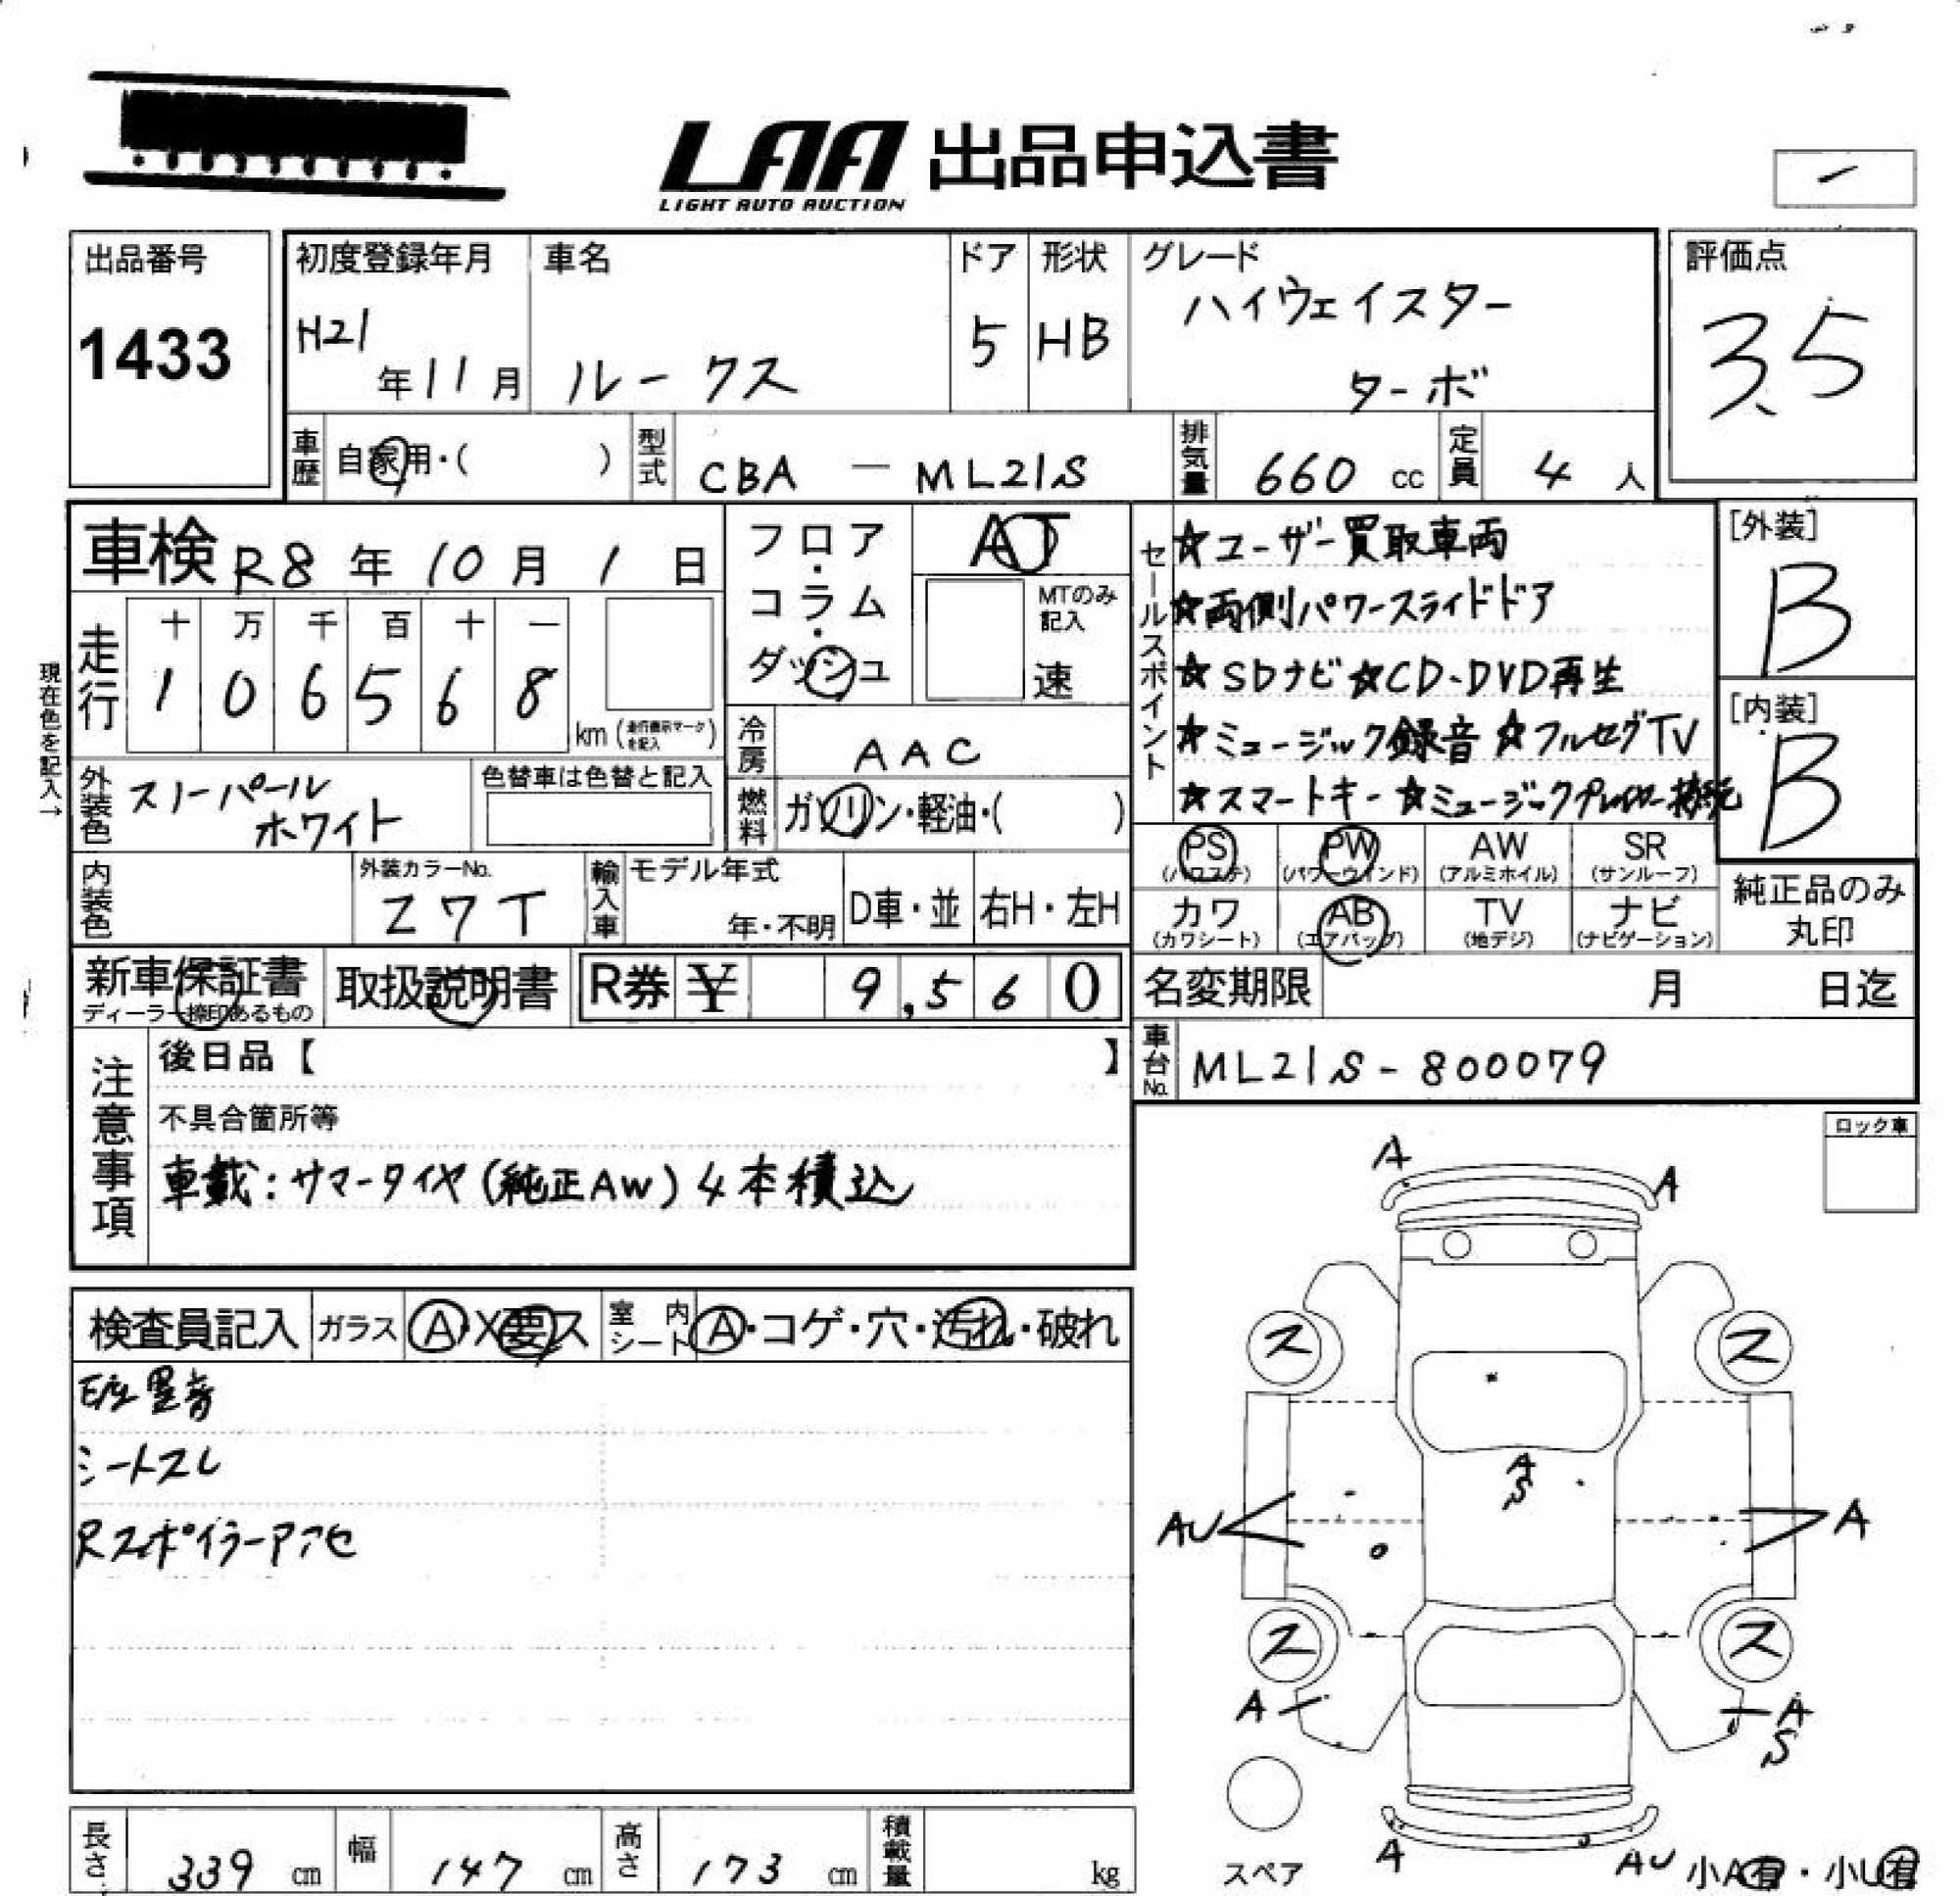 LAA 出品申込書
LIGHT AUTO AUCTION
出品番号
1433
初度登録年月
H21年11月
車名
ルークス
ドア
5
形状
HB
グレード
ハイウェイスター
ターボ
評価点
3.5
車歴 自家用・( )
型式 CBA - ML21S
排気量 660 cc
定員 4 人
車検 R8年10月1日
フロア・コラム・ダッシュ
AT
MTのみ記入
速
走行
十 万 千 百 十 一
1 0 6 5 6 8
km (走行表示マークを記入)
現在色を記入→
冷房 AAC
燃料 ガソリン・軽油・( )
外装色 スノーパール
ホワイト
色替車は色替と記入
内装色
外装カラーNo.
Z7T
輸入車
モデル年式
年・不明
D車・並
右H・左H
セールスポイント
☆ユーザー買取車両
☆両側パワースライドドア
☆SDナビ☆CD-DVD再生
☆ミュージック録音☆フルセグTV
☆スマートキー☆ミュージックプレイヤー接続
[外装]
B
[内装]
B
PS (パワステ)
PW (パワーウインド)
AW (アルミホイル)
SR (サンルーフ)
カワ (カワシート)
AB (エアバッグ)
TV (地デジ)
ナビ (ナビゲーション)
純正品のみ
丸印
新車保証書
ディーラー捺印あるもの
取扱説明書
R券 ¥ 9,560
名変期限 月 日迄
車台No. ML21S-800079
注意事項
後日品【 】
不具合箇所等
車載:サマータイヤ(純正AW)4本積込
ロック車
検査員記入
ガラス A・X要ス
室内シート A・コゲ・穴・汚れ・破れ
シートスレ
Rスポイラーアアセ
A
A
ス
ス
A
S
AU
A
ス
ス
A
A
S
A
AU
スペア
小A有・小U有
長さ 339 cm
幅 147 cm
高さ 173 cm
積載量 kg